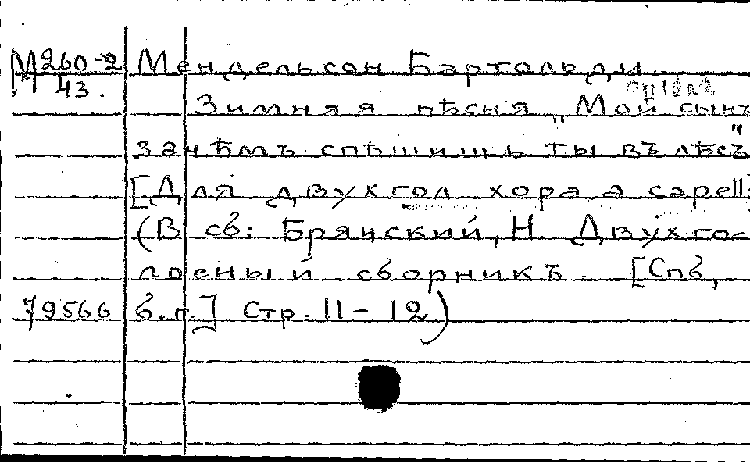 М260-2 Мендельсон Бартольди.
43. Зимняя пѣсня „Мой сынъ
зачѣмъ спѣшишь ты въ лѣсъ"
[Для двухгол хора a capell
(В сб: Брянский, Н. Двухго-
лосный сборникъ. [Спб,
79566 б.г.] Стр. 11-12)